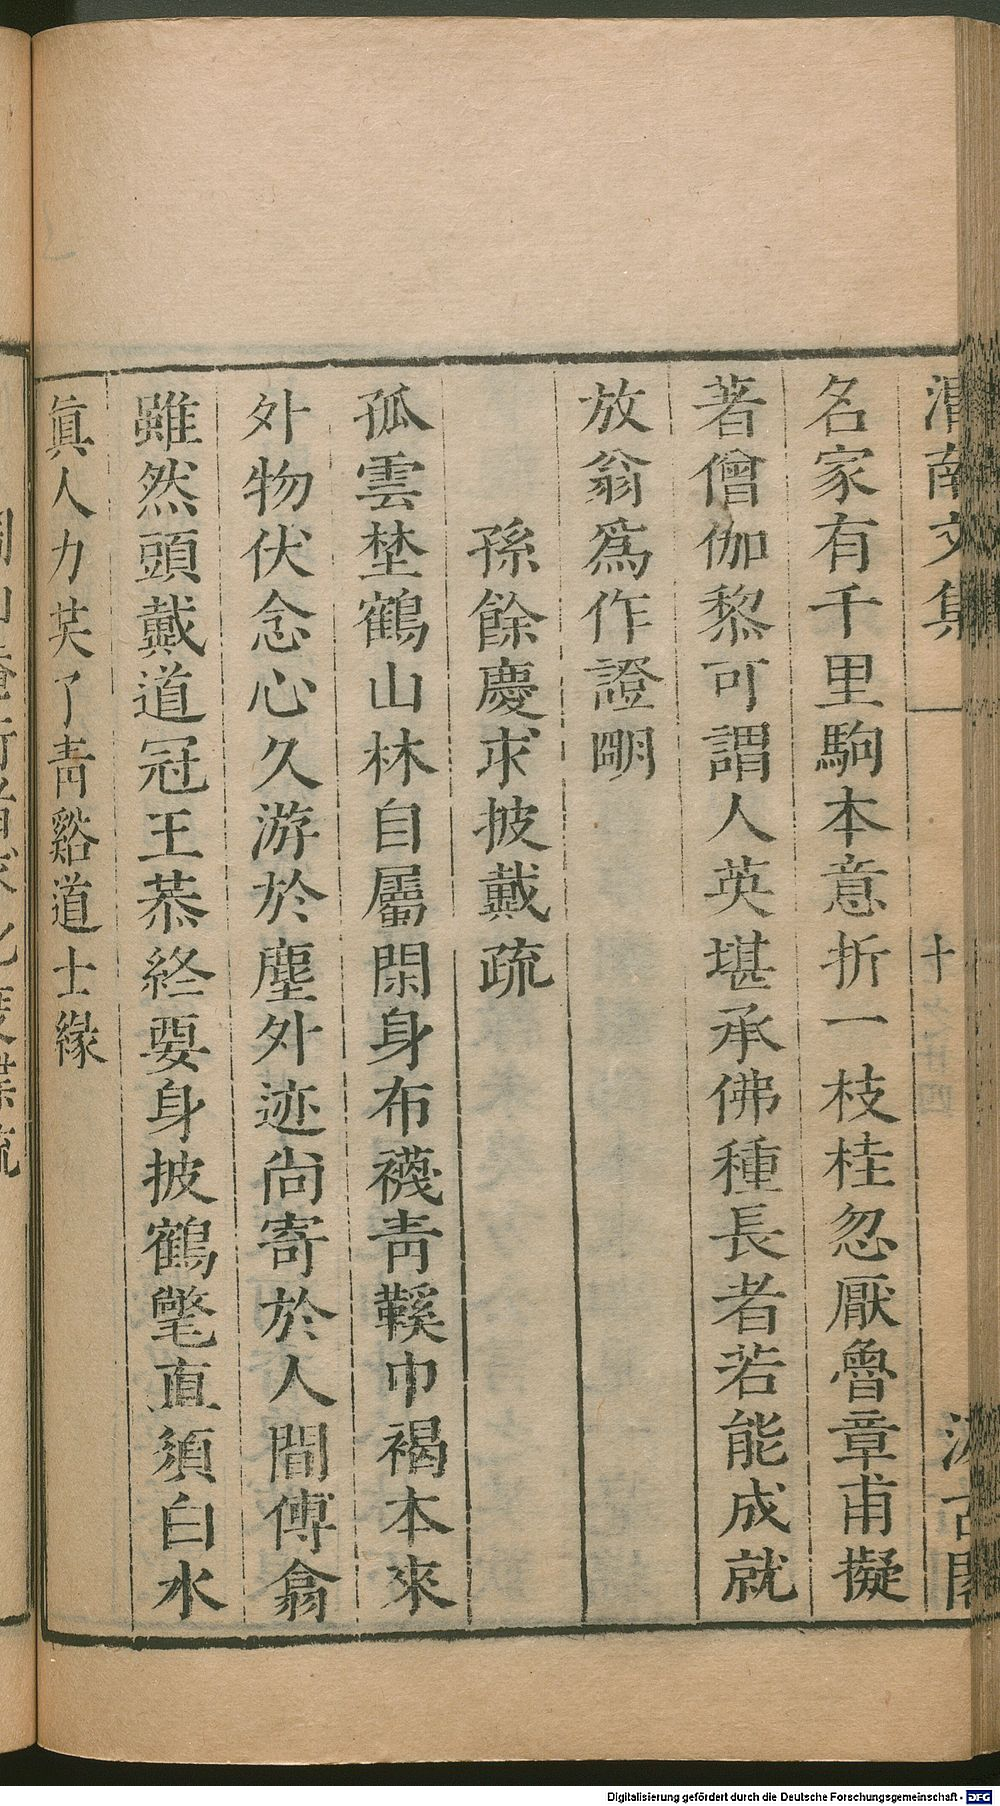 渭南文集
汲古閣
名家有千里駒本意折一枝桂忽厭魯章甫擬
著僧伽黎可謂人英堪承佛種長者若能成就
放翁爲作證明
孫餘慶求披戴疏
孤雲埜鶴山林自屬閑身布襪青鞵巾褐本來
外物伏念心久游於塵外迹尚寄於人間傅翕
雖然頭戴道冠王恭終要身披鶴氅直須白水
眞人力芺了青谿道士緣
Digitalisierung gefördert durch die Deutsche Forschungsgemeinschaft - DFG